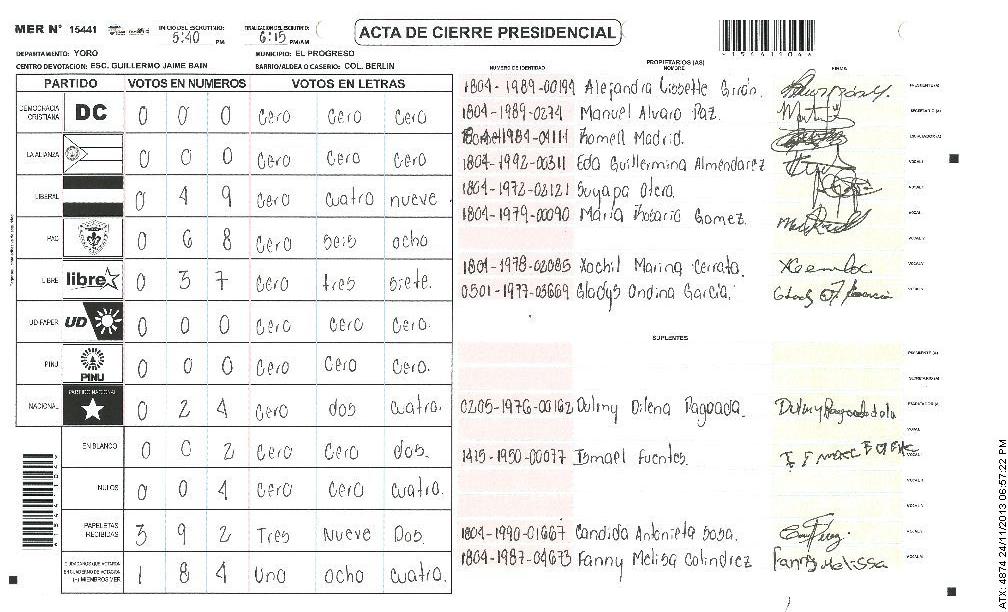 MER N° 15441
INICIO DEL ESCRUTINIO: 5:40 PM
FINALIZACION DEL ESCRUTINIO: 6:15 PM/AM
ACTA DE CIERRE PRESIDENCIAL
DEPARTAMENTO: YORO
MUNICIPIO: EL PROGRESO
CENTRO DE VOTACION: ESC. GUILLERMO JAIME BAIN
BARRIO/ALDEA O CASERIO: COL. BERLIN
PARTIDO VOTOS EN NUMEROS VOTOS EN LETRAS
DEMOCRACIA CRISTIANA DC 0 0 0 Cero Cero Cero
LA ALIANZA 0 0 0 Cero Cero Cero
LIBERAL 0 4 9 Cero cuatro nueve
PAC 0 6 8 Cero seis ocho
LIBRE libre 0 3 7 Cero tres siete.
UD FAPER UD 0 0 0 Cero Cero Cero.
PINU PINU 0 0 0 Cero Cero Cero.
NACIONAL PARTIDO NACIONAL 0 2 4 Cero dos cuatro.
EN BLANCO 0 0 2 Cero Cero dos.
NULOS 0 0 4 Cero Cero cuatro.
PAPELETAS RECIBIDAS 3 9 2 Tres Nueve Dos.
1 8 4 Uno ocho cuatro.
NUMERO DE IDENTIDAD
PROPIETARIOS (AS)
NOMBRE
FIRMA
1804-1989-00194 Alejandra Lissette Girón.
1804-1989-0274 Manuel Alvaro Paz.
1984-04111 Romell Madrid.
1804-1992-00311 Eda Guillermina Almendarez
1804-1972-02121 Suyapa Otero.
1804-1979-00090 Maria Rosario Gomez.
1801-1978-02085 Xochil Marina Cerrato.
0501-1977-03609 Gladys Ondina Garcia.
SUPLENTES
0205-1976-00162 Dulmy Dilena Pagoada.
1415-1950-00077 Ismael Fuentes.
1804-1990-01667 Candida Antonieta Sosa.
1804-1987-04673 Fanny Melisa Colindrez Fanny Melissa
ATX: 4874 24/11/2013 06:57:22 PM